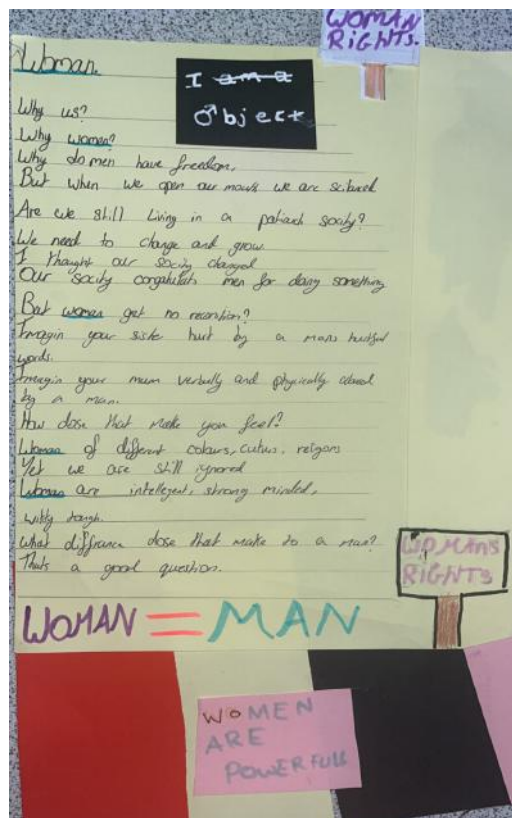 WOMAN
RIGHTS.
Woman.
I am a
Object
Why us?
Why women?
Why do men have freedom,
But when we open our we are
Are we still living in a patiach socity?
We need to change and grow
I thought our socity changed
Our socity congatulats men for doing something
But woman get no reconition?
Imagin your siste hurt by a mans hutful
words.
Imagin your mum verbully and physically abused
by a man.
How dose that make you feel?
Woman of different colours, cuturs, reigons
Yet we are still ignored
Woman are intellegent, strong minded,
witty tough.
What diffrance dose that make to a man?
Thats a good question.
WOMAN'S
RIGHTS
WOMAN = MAN
WOMEN
ARE
POWERFULL